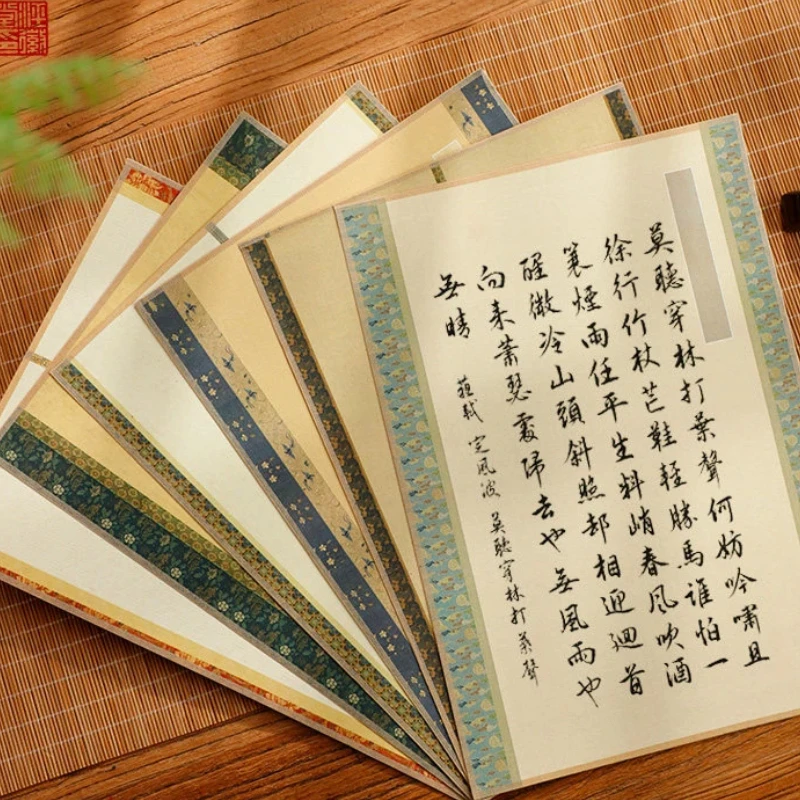 莫聽穿林打葉聲何妨吟嘯且
徐行竹杖芒鞋輕勝馬誰怕一
蓑煙雨任平生料峭春風吹酒
醒微冷山頭斜照却相迎迴首
向来蕭瑟處歸去也無風雨也
無晴
蘇軾 定風波 莫聽穿林打葉聲